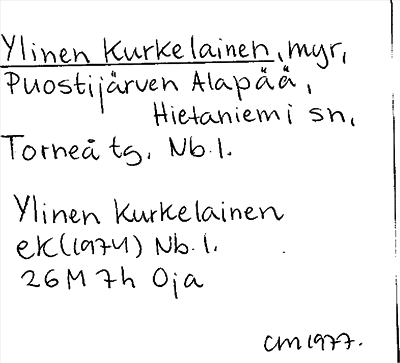 Ylinen Kurkelainen, myr,
Puostijärven Alapää,
Hietaniemi sn,
Torneå tg. Nb.l.
Ylinen Kurkelainen
ek(1974) Nb.l.
26M 7h Oja
CM1977.